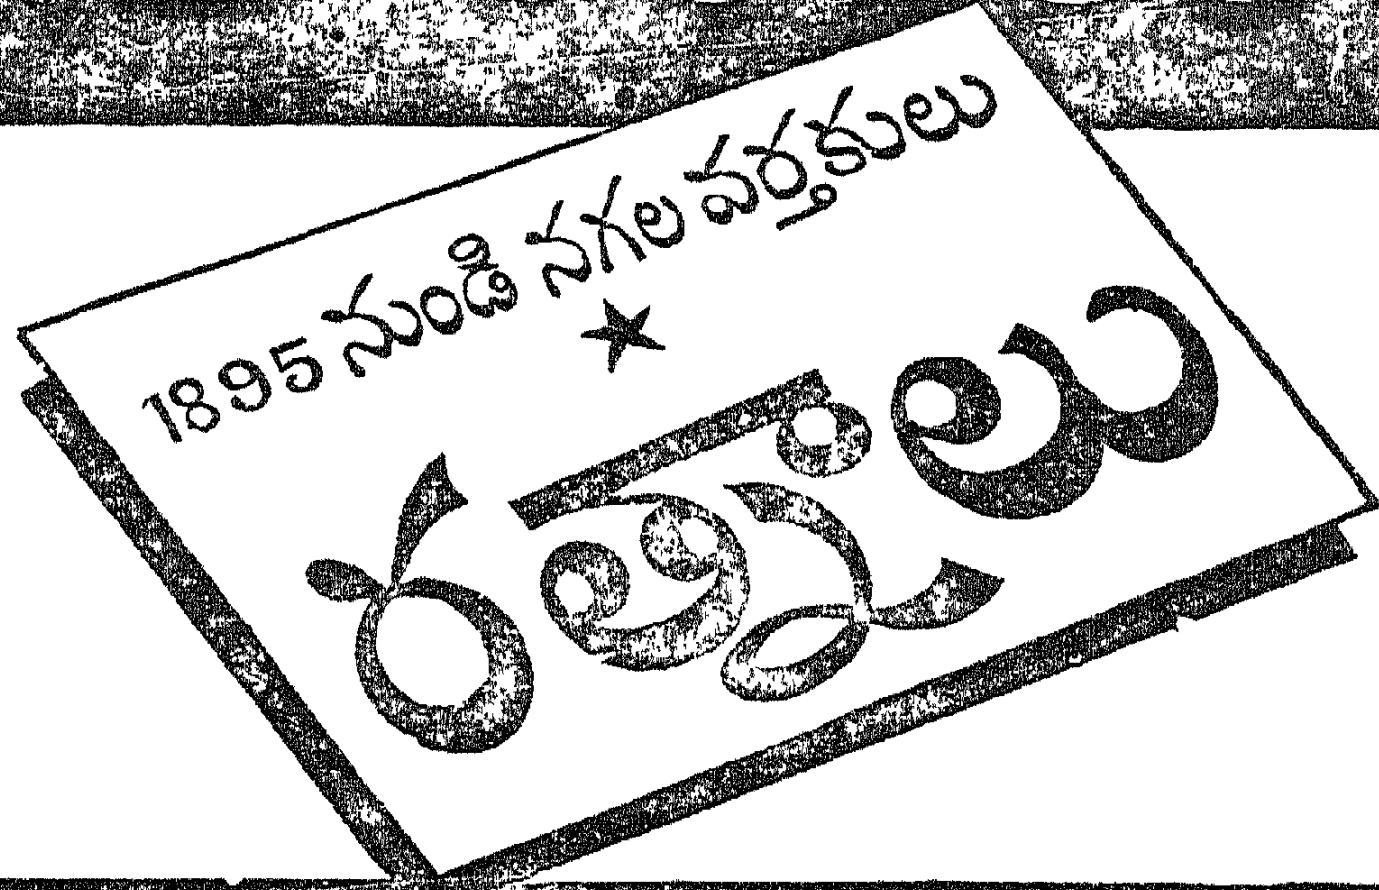 1895 నుండి నగల వర్తకులు
రత్నాలు